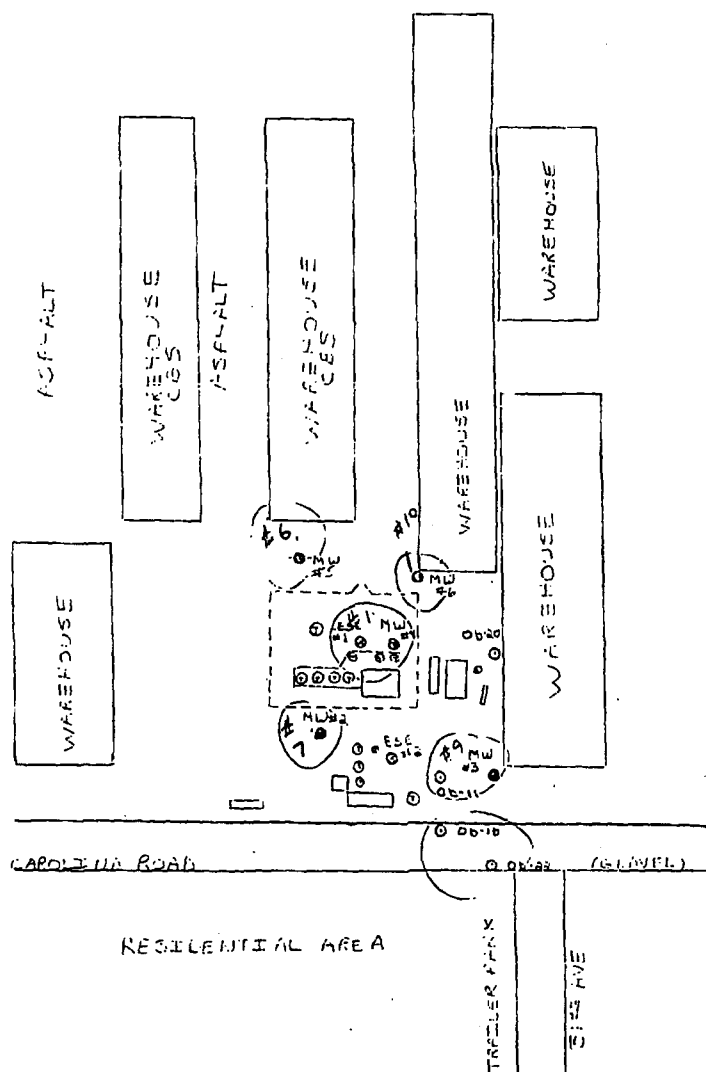 ASPHALT
WAREHOUSE
CBS
ASPHALT
WAREHOUSE
CBS
WAREHOUSE
WAREHOUSE
WAREHOUSE
WAREHOUSE
#6.
MW
#5
#10
MW
#6
#1
ESE
#1
MW
Ob-20
#7
MW#2
ESE
#2
#9
MW
#3
Ob-11
Ob-16
CAROLINA ROAD
Ob-22
(GRAVEL)
RESIDENTIAL AREA
TRAILER PARK
AVE